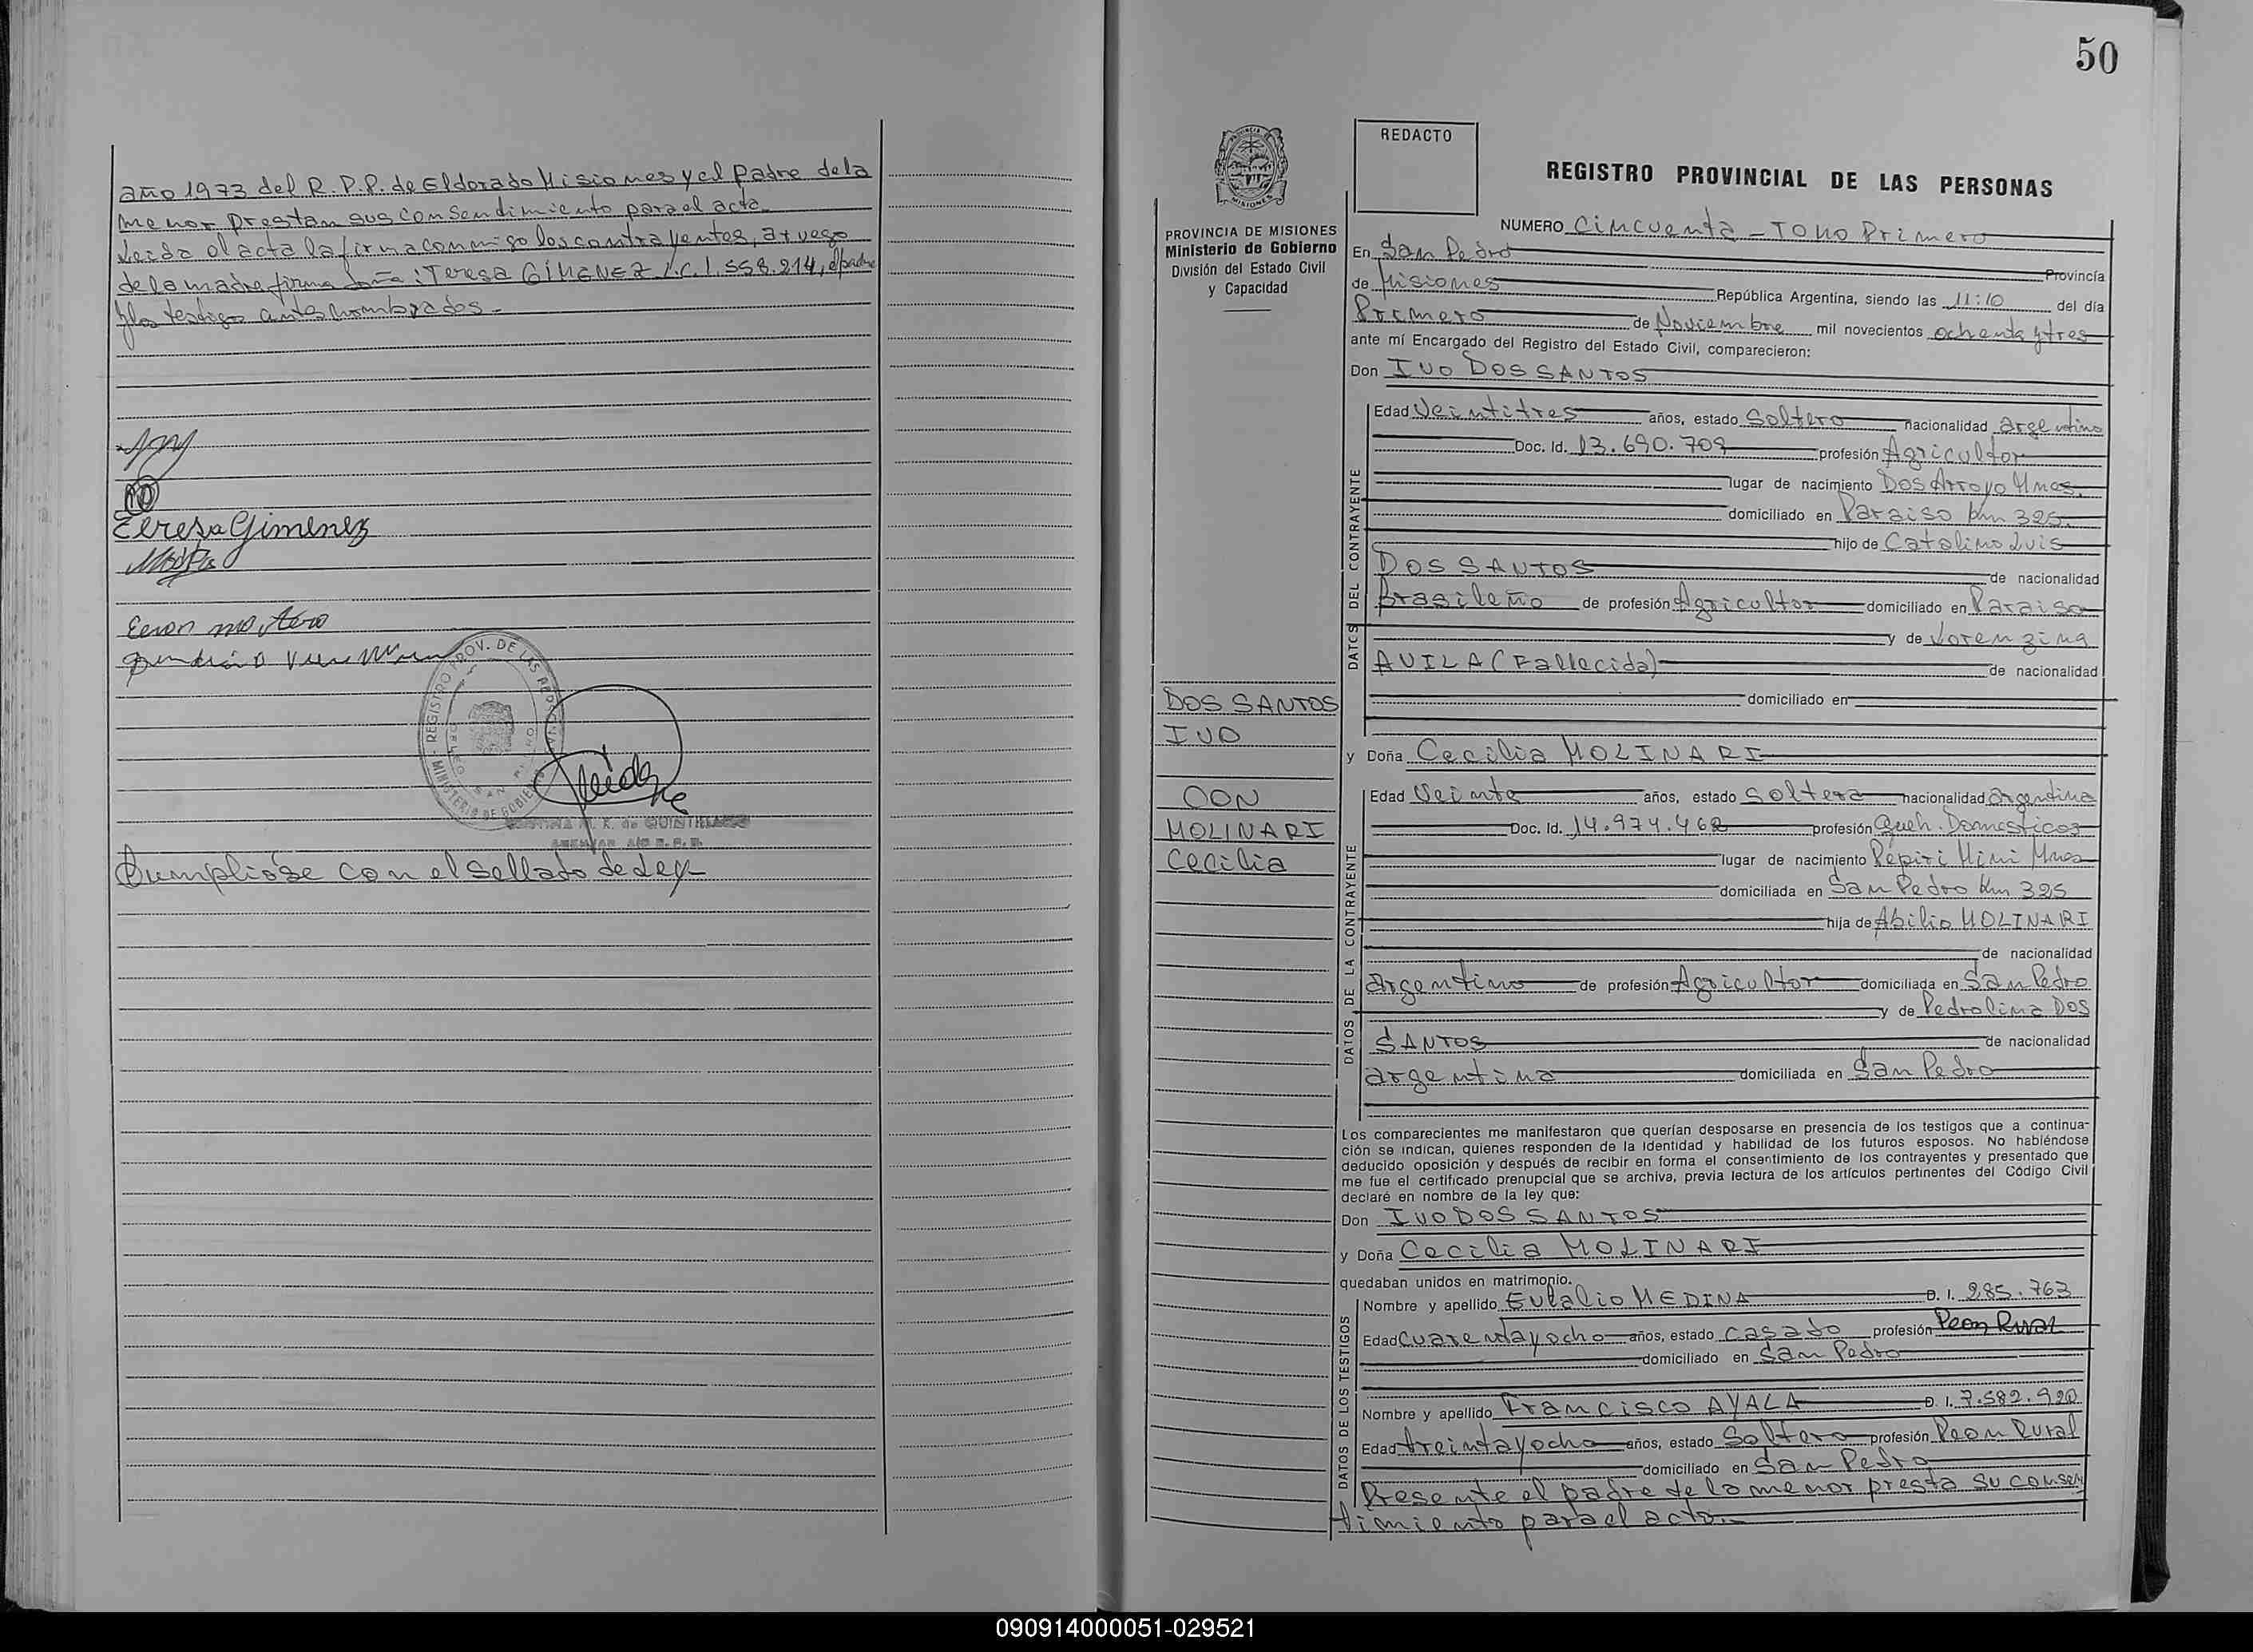 año 1973 del R.P.P. de Eldorado Misiones y el padre de la
menor prestan sus consendimiento para el acto.
Leida el acta la firma conmigo los contrayentes, a ruego
de la madre firma doña: Teresa GIMENEZ L.C.1.558.214, el padre
y los testigos antes nombrados.-
Teresa Gimenez
MINISTERIO DE GOBIERNO REGISTRO PROV. DE LAS PERSONAS
Cumplióse con el Sellado de Ley-
50
PROVINCIA DE MISIONES
Ministerio de Gobierno
División del Estado Civil
y Capacidad
DOS SANTOS
IVO
CON
MOLINARI
Cecilia
REDACTO
REGISTRO PROVINCIAL DE LAS PERSONAS
NUMERO Cincuenta - TOMO Primero
En San Pedro Provincia
de Misiones República Argentina, siendo las 11:10 del día
Primero de Noviembre mil novecientos ochenta y tres
ante mí Encargado del Registro del Estado Civil, comparecieron:
Don IVO DOS SANTOS
DATOS DEL CONTRAYENTE
Edad Veintitres años, estado Soltero nacionalidad argentino
Doc. Id. 13.690.709 profesión Agricultor
lugar de nacimiento Dos Arroyo Mnes.
domiciliado en Paraiso km 325.
hijo de Catalino Luis
DOS SANTOS de nacionalidad
Brasileño de profesión Agricultor domiciliado en Paraiso
y de Lorenzina
AVILA (Fallecida) de nacionalidad
domiciliado en
y Doña Cecilia MOLINARI
DATOS DE LA CONTRAYENTE
Edad Veinte años, estado Soltera nacionalidad argentina
Doc. Id. 14.974.462 profesión Queh. Domesticos
lugar de nacimiento Pepiri Mini Mnes
domiciliada en San Pedro km 325
hija de Abilio MOLINARI
de nacionalidad
argentino de profesión Agricultor domiciliada en San Pedro
y de Pedrolina DOS
SANTOS de nacionalidad
argentina domiciliada en San Pedro
Los comparecientes me manifestaron que querían desposarse en presencia de los testigos que a continua-
ción se indican, quienes responden de la identidad y habilidad de los futuros esposos. No habiéndose
deducido oposición y después de recibir en forma el consentimiento de los contrayentes y presentado que
me fue el certificado prenupcial que se archiva, previa lectura de los artículos pertinentes del Código Civil
declaré en nombre de la ley que:
Don IVO DOS SANTOS
y Doña Cecilia MOLINARI
quedaban unidos en matrimonio.
DATOS DE LOS TESTIGOS
Nombre y apellido Eulalio MEDINA D. I. 285.763
Edad cuarentayocho años, estado casado profesión Peon Rural
domiciliado en San Pedro
Nombre y apellido Francisco AYALA D. I. 7.582.920
Edad treintayocho años, estado Soltero profesión Peon Rural
domiciliado en San Pedro
Presente el padre de la menor presta su consen
timiento para el acto.-
090914000051-029521